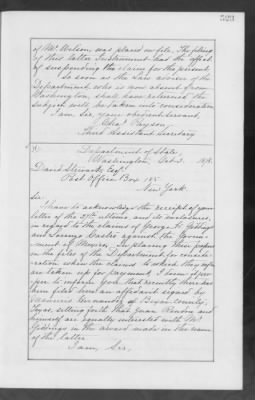 523
of Mr. Wilson, was placed on file. The filing
of this latter instrument has the effect
of suspending the claim for the present.
So soon as the Law adviser of the
Department, who is now absent from
Washington, shall have returned the
subject will be taken into consideration.
I am, Sir, your obedient servant,
Chas. Payson,
Third Assistant Secretary
Department of State,
Washington, Oct. 2. 1878.
David Stewart, Esq.
Post Office Box 185
New York.
Sir,
I have to acknowledge the receipt of your
letter of the 27th ultimo, and its enclosures,
in regard to the claims of George H. Giddings
and Saringa Castro against the Govern-
ment of Mexico. In placing these papers
on the files of the Department, for conside-
ration when the claims to which they refer
are taken up for payment, I deem it pro-
per to inform you that recently there has
been filed here an affidavit signed by
Hernandez, of Bexar county,
Texas, setting forth that Juan Rendon and
himself are equally interested with Mr.
Giddings in the award made in the name
of the latter.
I am, Sir,